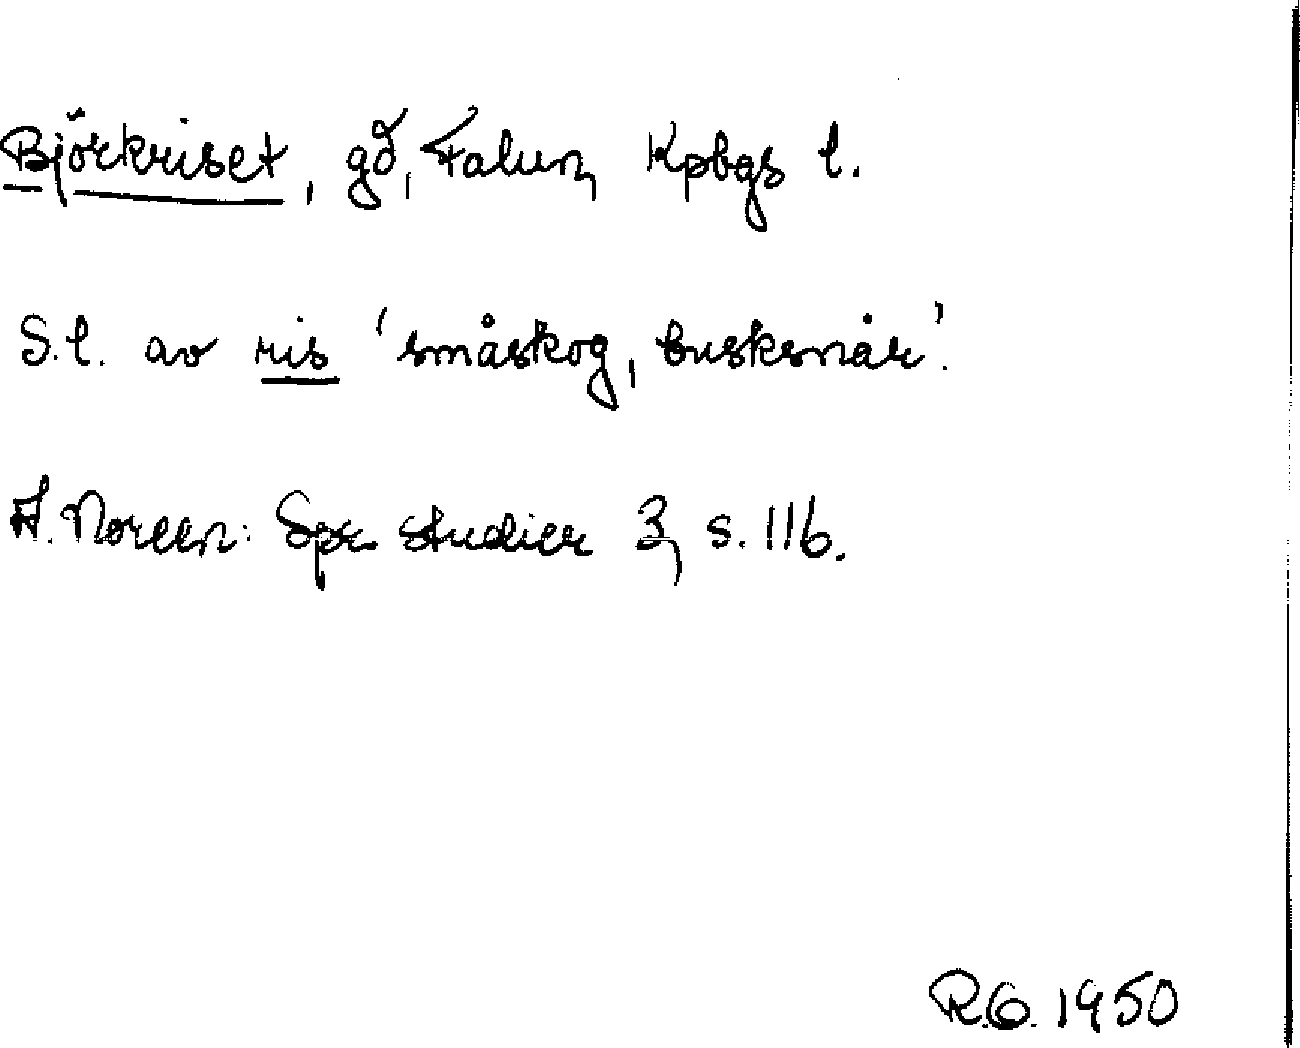 Björkriset, gd, Falun, Kpbgs l.
S.l. av ris 'småskog, busksnår'.
A. Noreen: Spr. studier 3, s. 116.
R.G. 1950